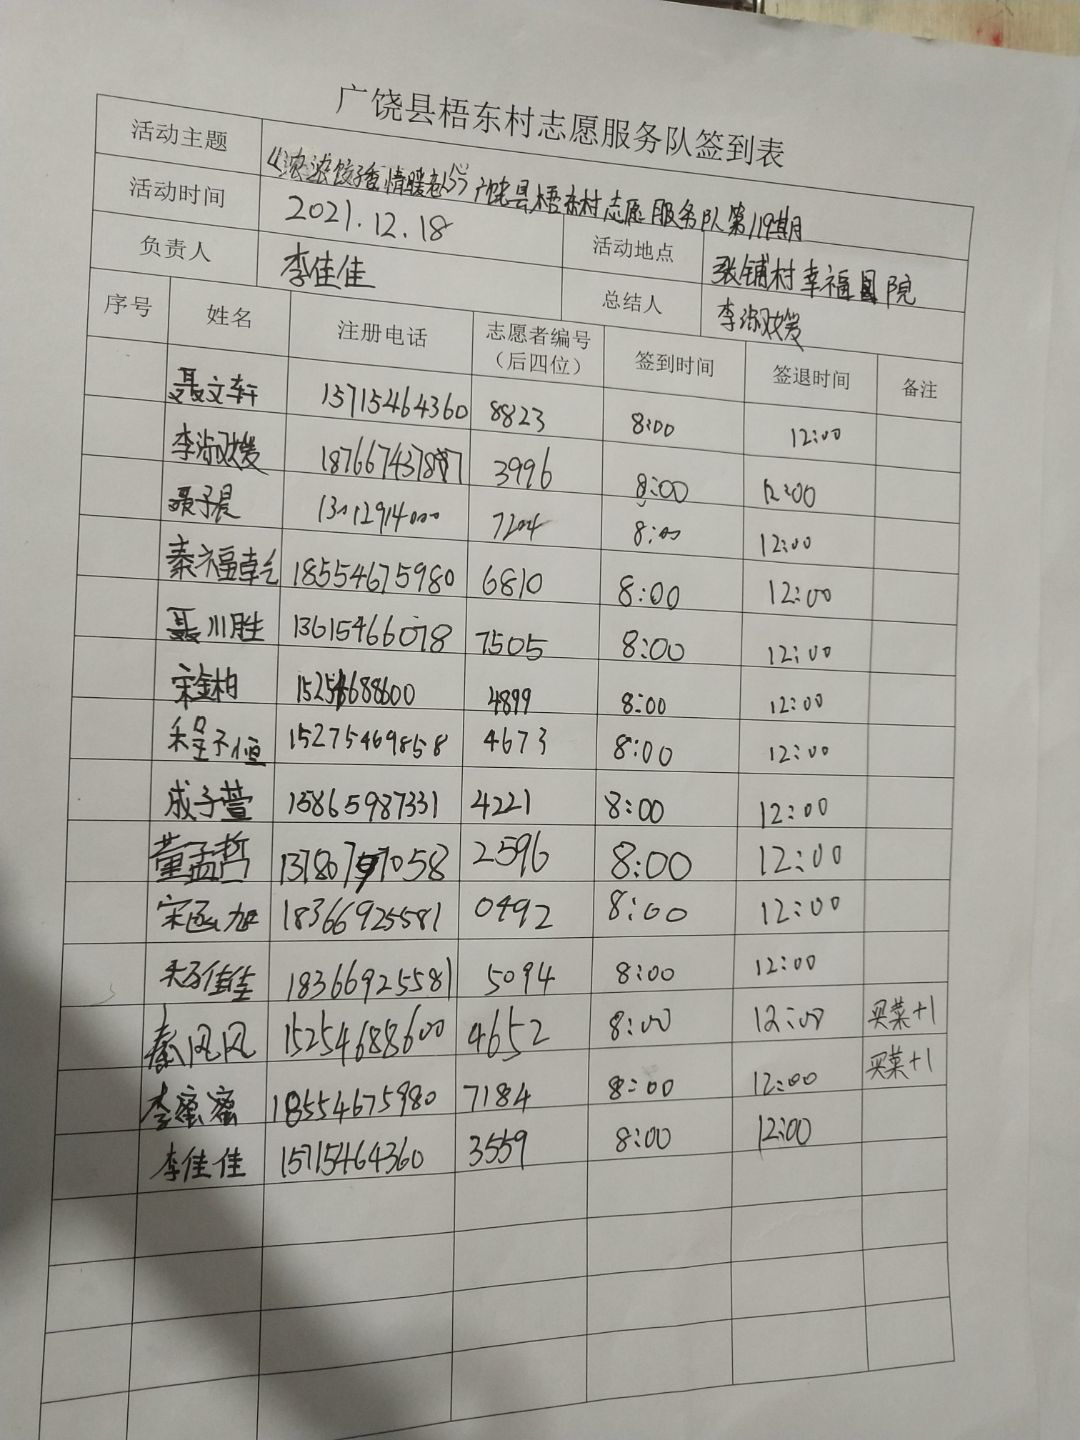 广饶县梧东村志愿服务队签到表
活动主题 《浓浓饺子香 情暖老人心》广饶县梧东村志愿服务队第119期
活动时间 2021.12.18 活动地点 张铺村幸福院
负责人 李佳佳 总结人 李淑媛
序号 姓名 注册电话 志愿者编号（后四位） 签到时间 签退时间 备注
聂文轩 15715464360 8823 8:00 12:00
李淑媛 3996 8:00 12:00
聂子晨 7204 8:00 12:00
秦福乾 18554675980 6810 8:00 12:00
聂川胜 13615466078 7505 8:00 12:00
宋金柏 15254688600 4899 8:00 12:00
程子恒 15275469858 4673 8:00 12:00
成子萱 15865987331 4221 8:00 12:00
董孟哲 2596 8:00 12:00
宋函旭 18366925581 0492 8:00 12:00
18366925581 5094 8:00 12:00
秦风风 15254688600 4652 8:00 12:00 买菜+1
李蜜蜜 18554675980 7184 8:00 12:00 买菜+1
李佳佳 15715464360 3559 8:00 12:00